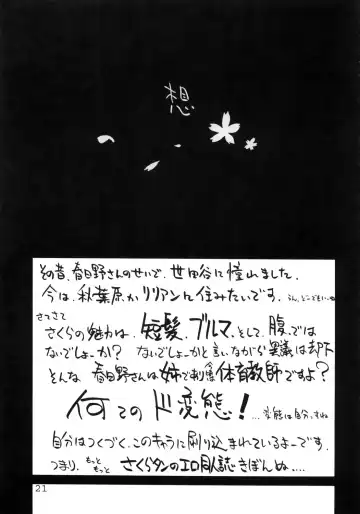 想
その昔、春日野さんのせいで、世田谷に憧れました。
今は、秋葉原かリリアンに住みたいです。
さてさて
さくらの魅力は、短髪、ブルマ、そして、腹、では
ないでしょーか? ないでしょーかと言いながら異議は却下
そんな 春日野さんは姉で 体育教師ですよ?
何てのド変態! ...変態は自分ですね
自分はつくづく、このキャラに刷り込まれているよーです。
つまり、もっともっと さくらタンのエロ同人誌きぼんぬ....
21